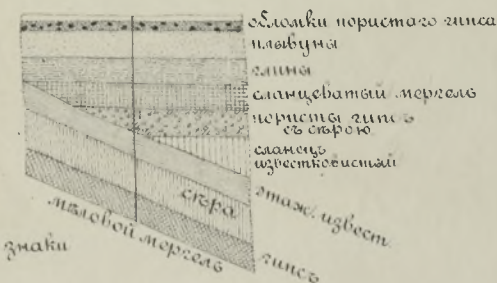 обломки пористаго гипса
плывуны
глины
сланцеватый мергель
пористы гипсъ
съ сѣрою
сланецъ
известковистый
этаж. извест
сѣра
мѣловой мергель
гипсъ
знаки